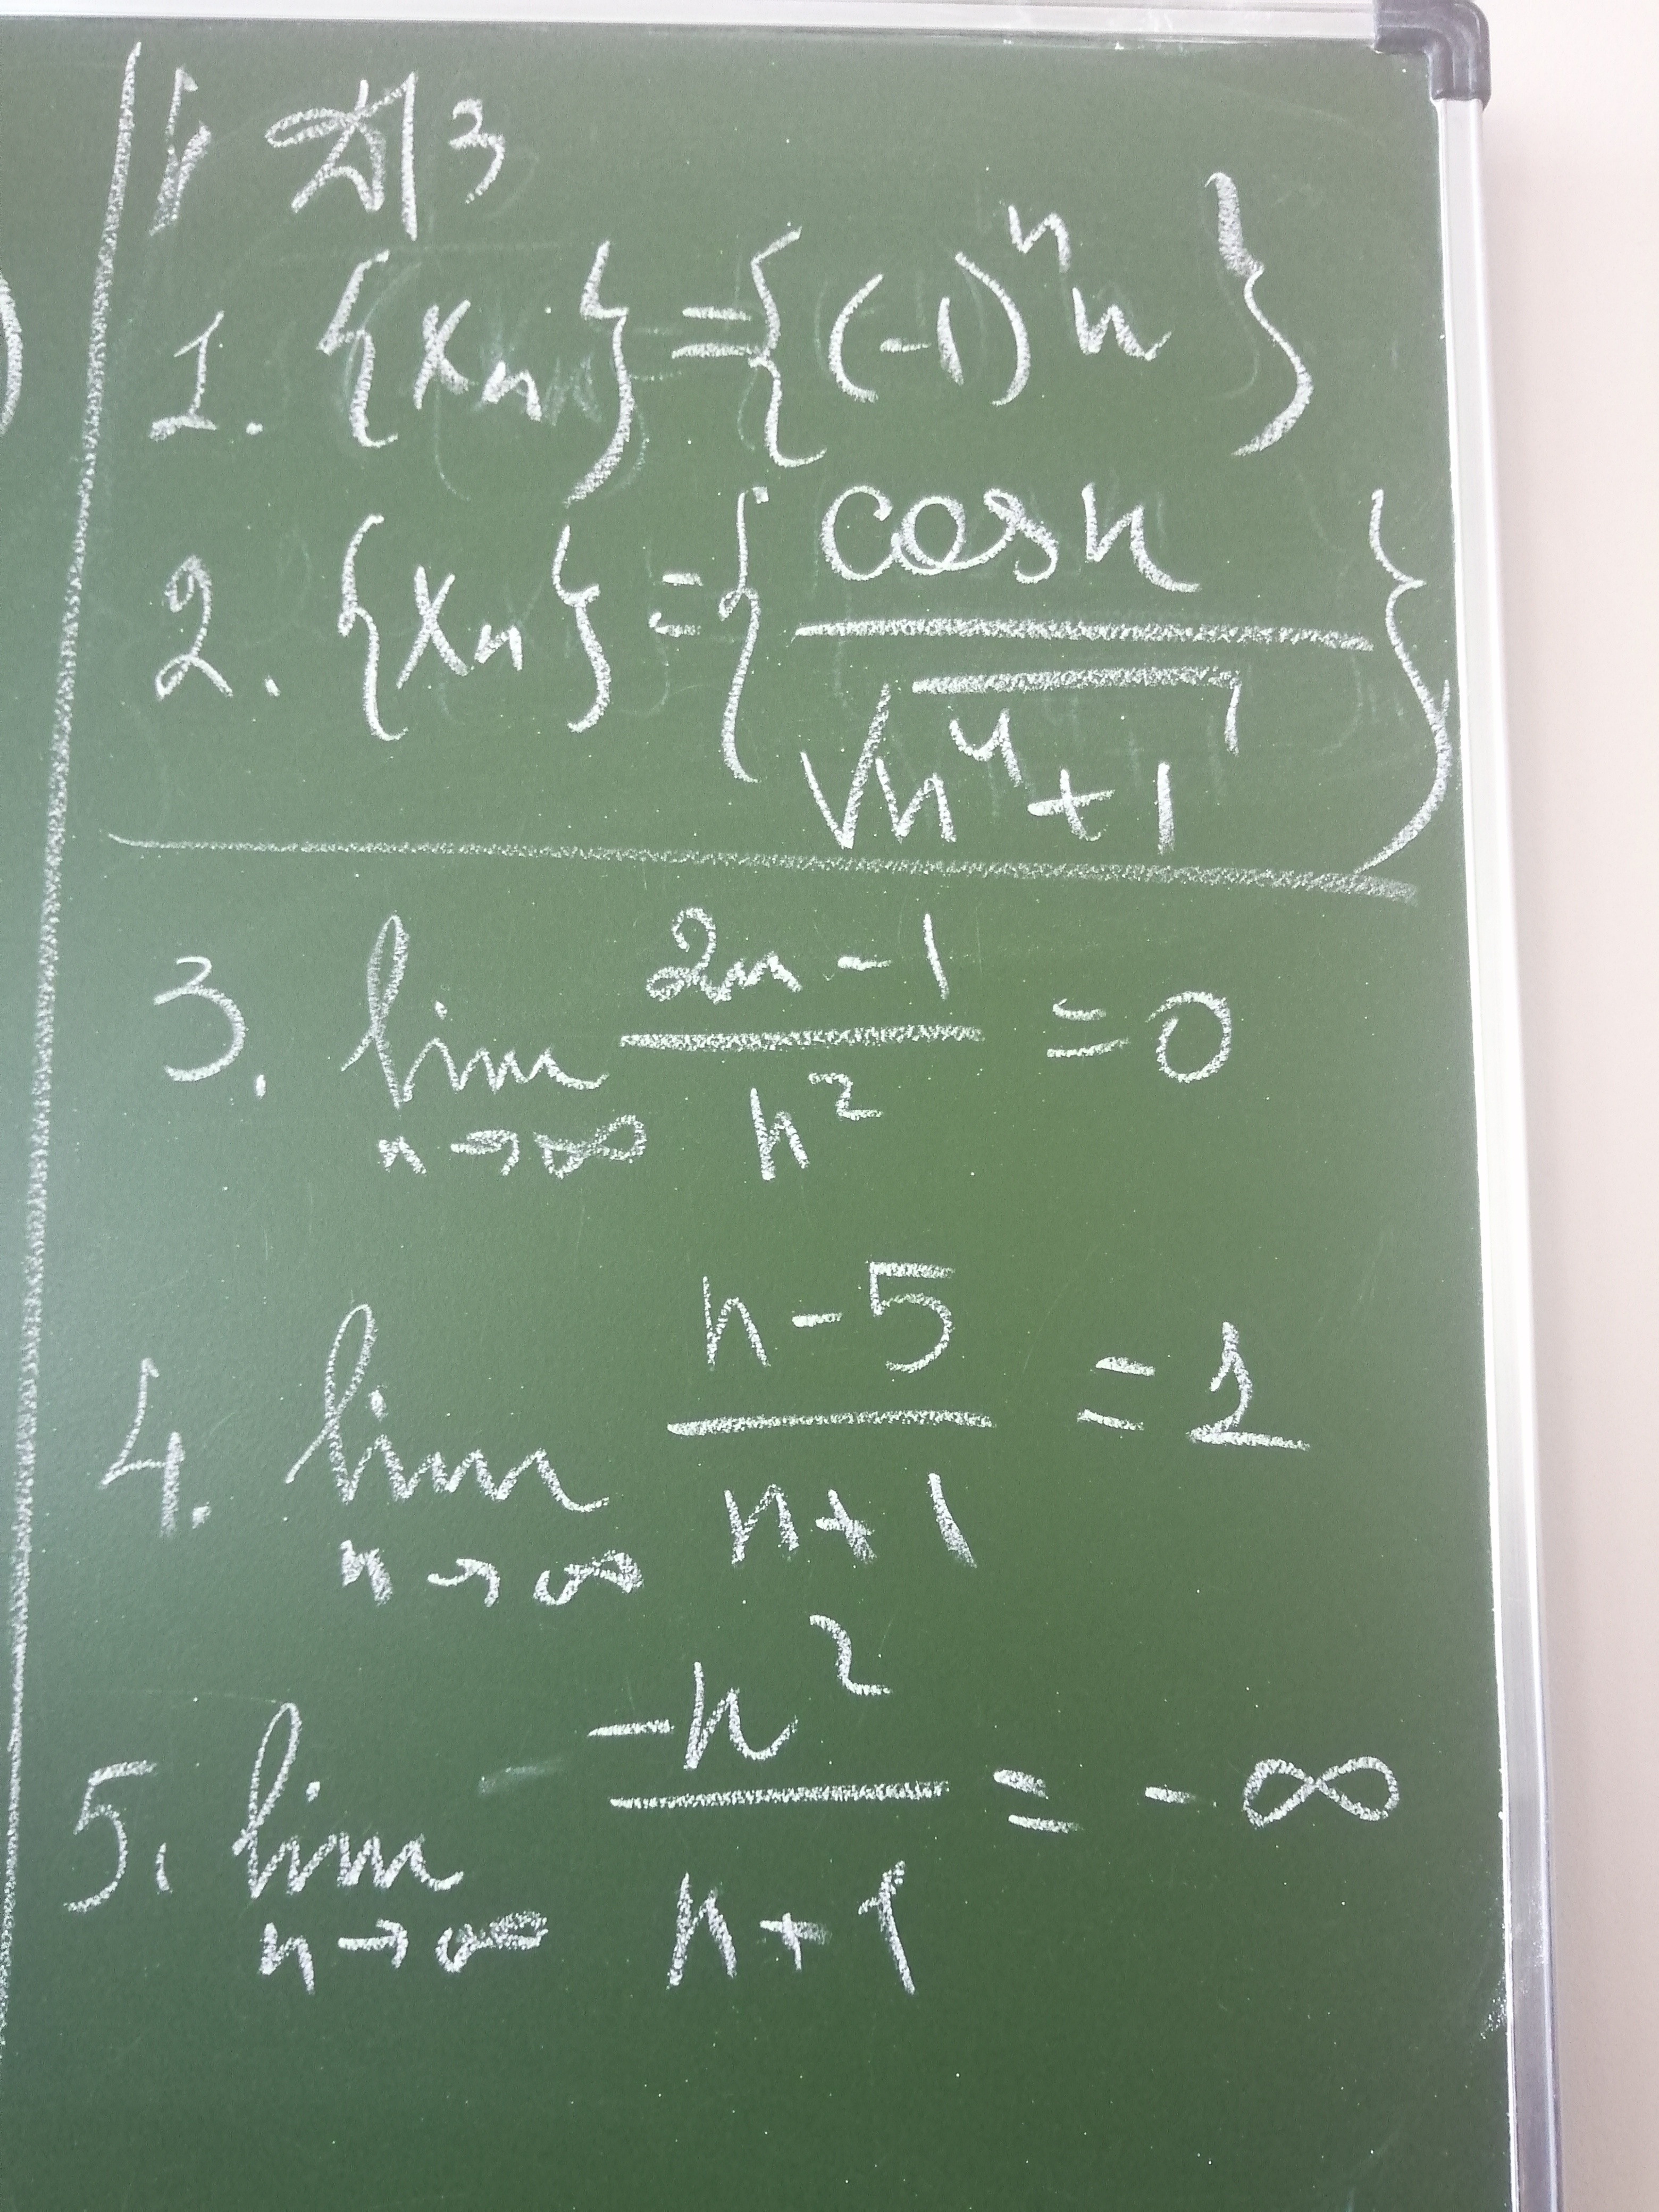 ДЗ
1. {xₙ} = {(-1)ⁿ n}
2. {xₙ} = {cos n / √(n⁴+1)}
3. lim n→∞ (2n-1)/n² = 0
4. lim n→∞ (n-5)/(n+1) = 1
5. lim n→∞ -n²/(n+1) = -∞